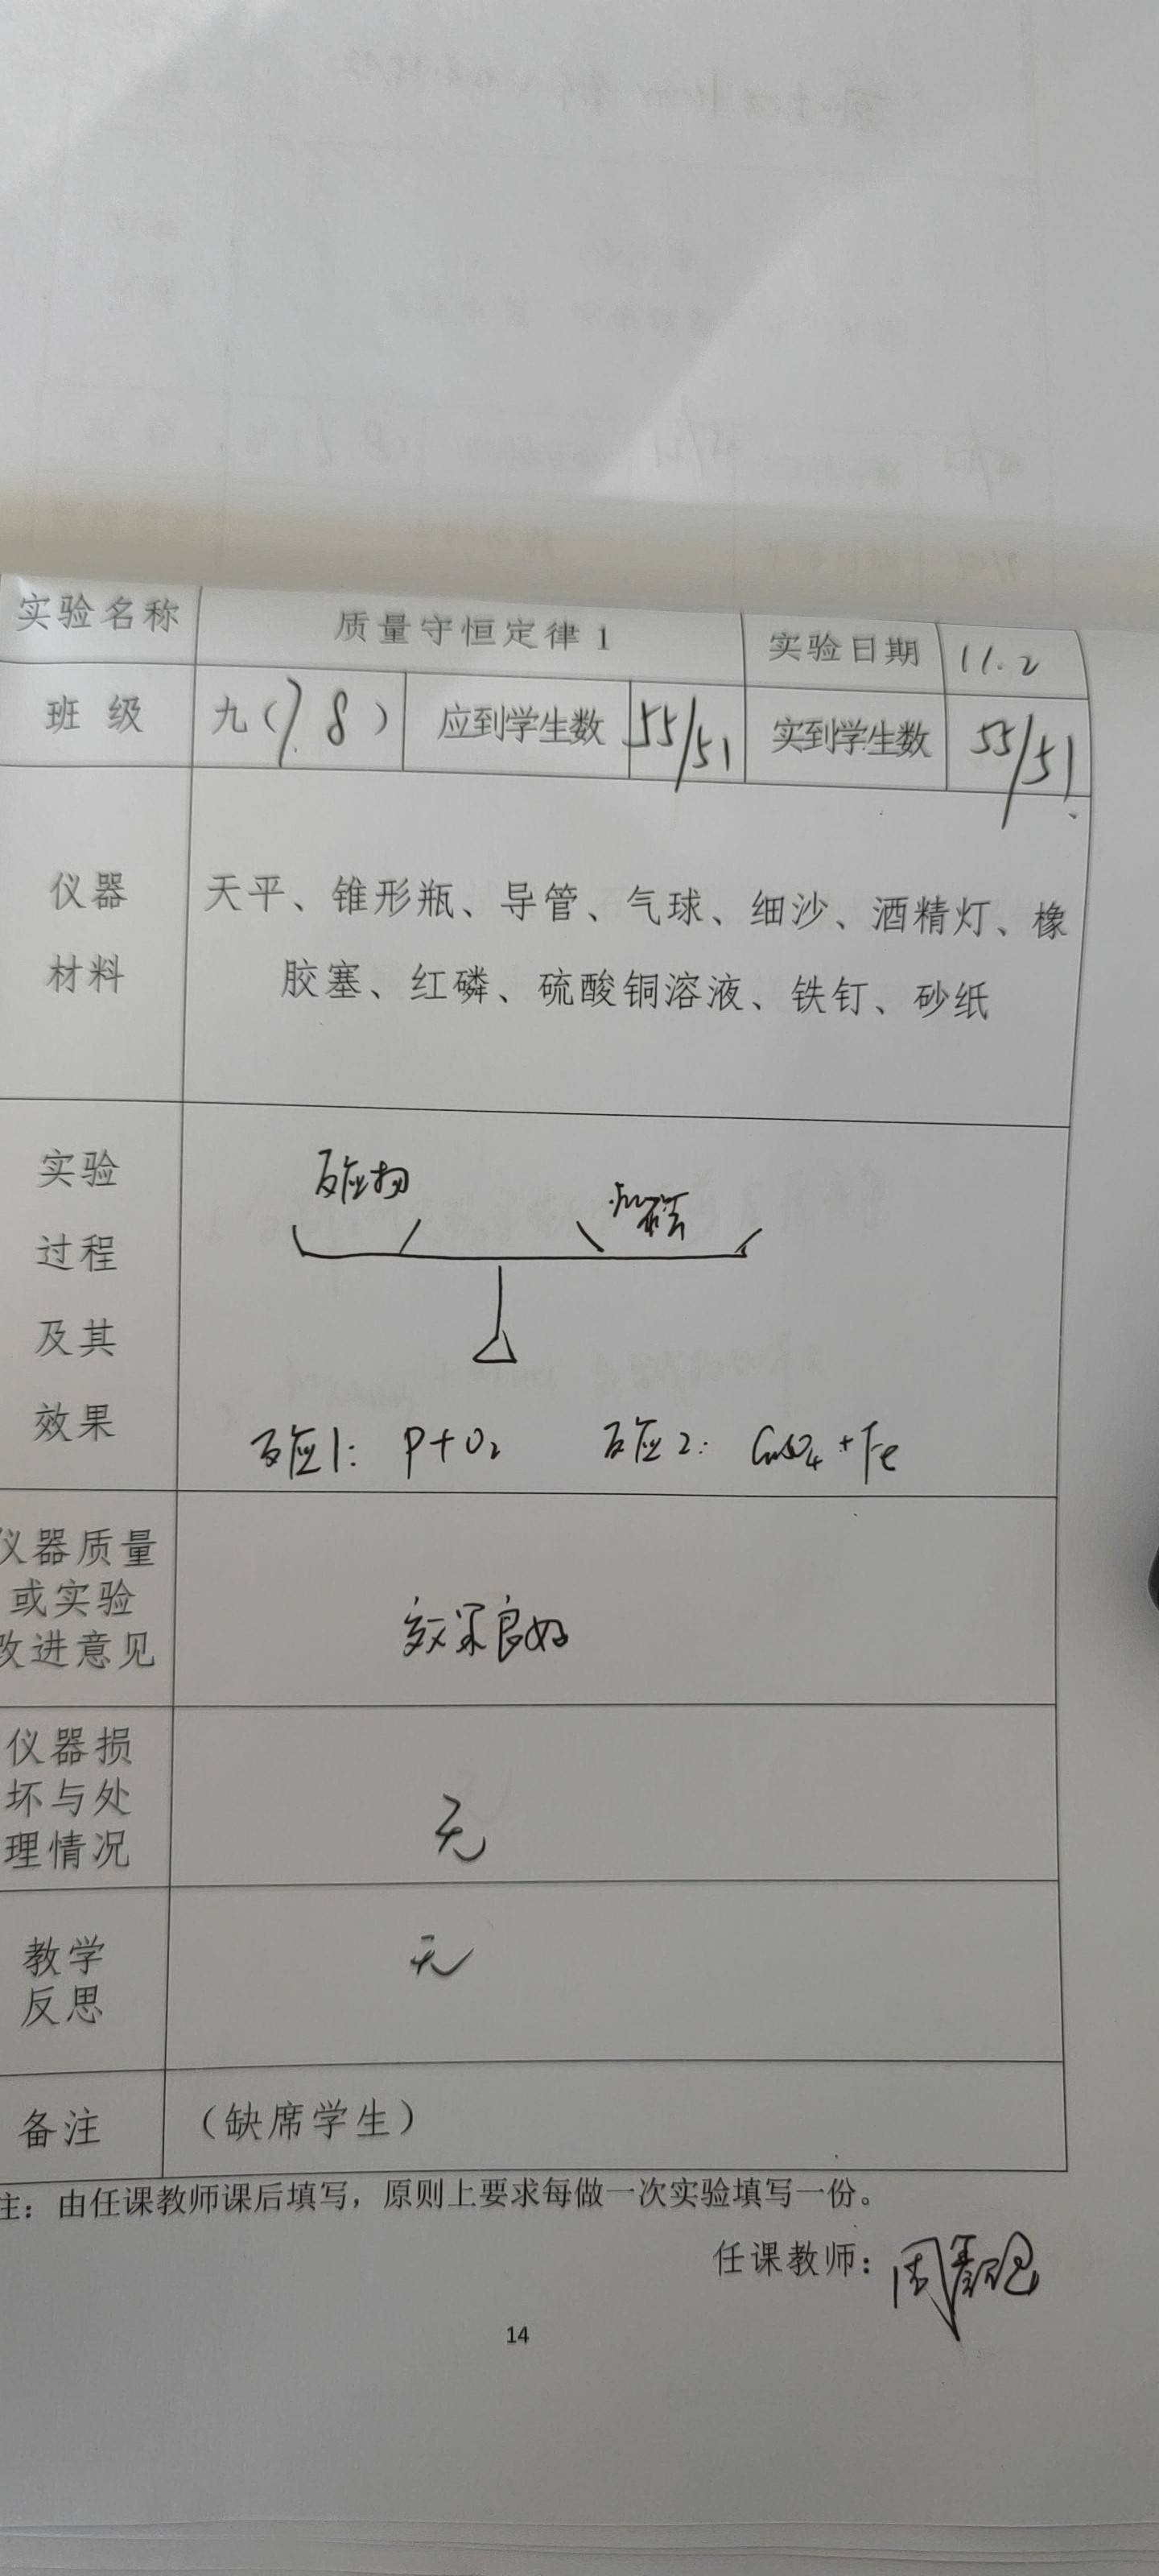 实验名称 质量守恒定律1 实验日期 11.2
班 级 九(7.8) 应到学生数 55/51 实到学生数 55/51
仪器 天平、锥形瓶、导管、气球、细沙、酒精灯、橡
材料 胶塞、红磷、硫酸铜溶液、铁钉、砂纸
实验 反应物 砝码
过程
及其
效果 反应1: P+O₂ 反应2: CuSO₄+Fe
仪器质量
或实验 效果良好
改进意见
仪器损
坏与处 无
理情况
教学 无
反思
备注 (缺席学生)
注：由任课教师课后填写，原则上要求每做一次实验填写一份。
任课教师：周
14